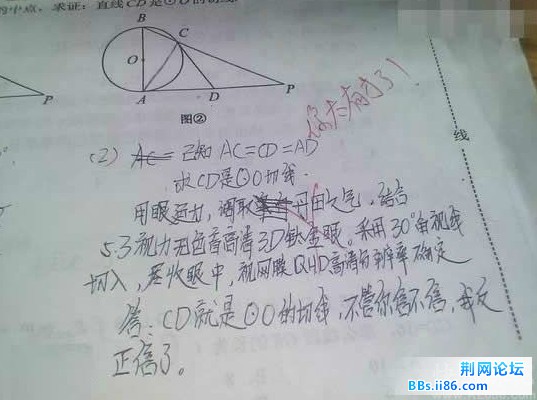 的中点，求证：直线CD是⊙O的切线.
B
C
O
A
D
P
P
图②
你太有才了！
线
(2) 已知 AC=CD=AD
求CD是⊙O切线.
用眼运力，调取丹田之气，结合
5.3视力无色盲高清3D钛金眼。采用30°角视线
切入，尽收眼中，视网膜QHD高清分辨率确定
答：CD就是⊙O的切线，不管你信不信，我反
正信了。
荆网论坛
BBs.ii86.com